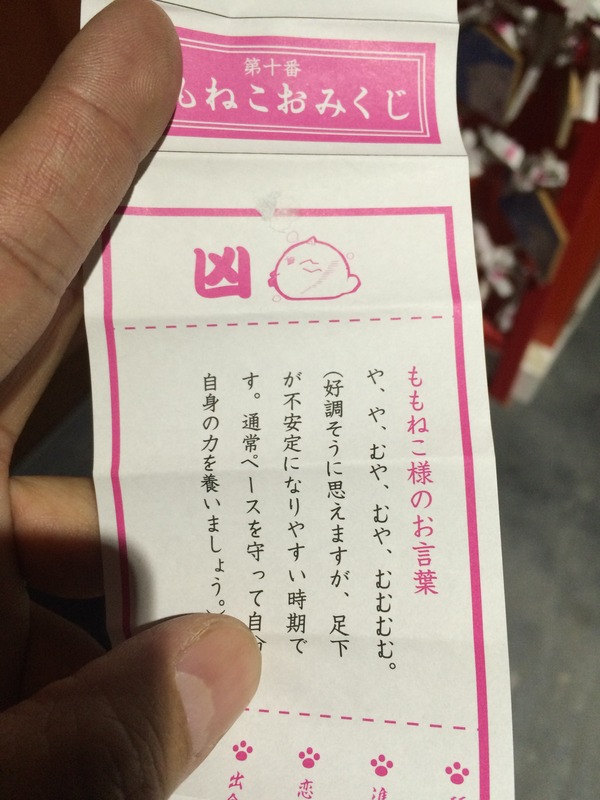 第十番
もねこおみくじ
凶
ももねこ様のお言葉
や、や、むや、むや、むむむむ。
（好調そうに思えますが、足下
が不安定になりやすい時期で
す。通常ペースを守って自分
自身の力を養いましょう。）
恋
出会